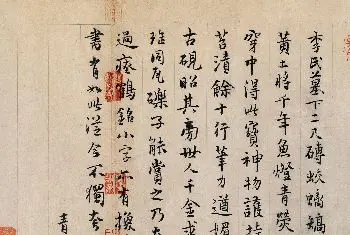 李氏墓下二尺磚蛟螭
黃土將千年魚燈青熒
穿中得此寶神物護持
苔漬餘十行筆力遒媚
古硯昭其世人千金求
同瓦礫子能賞之乃
過瘞鶴銘小字亦有換
書肯如此從今不獨
青